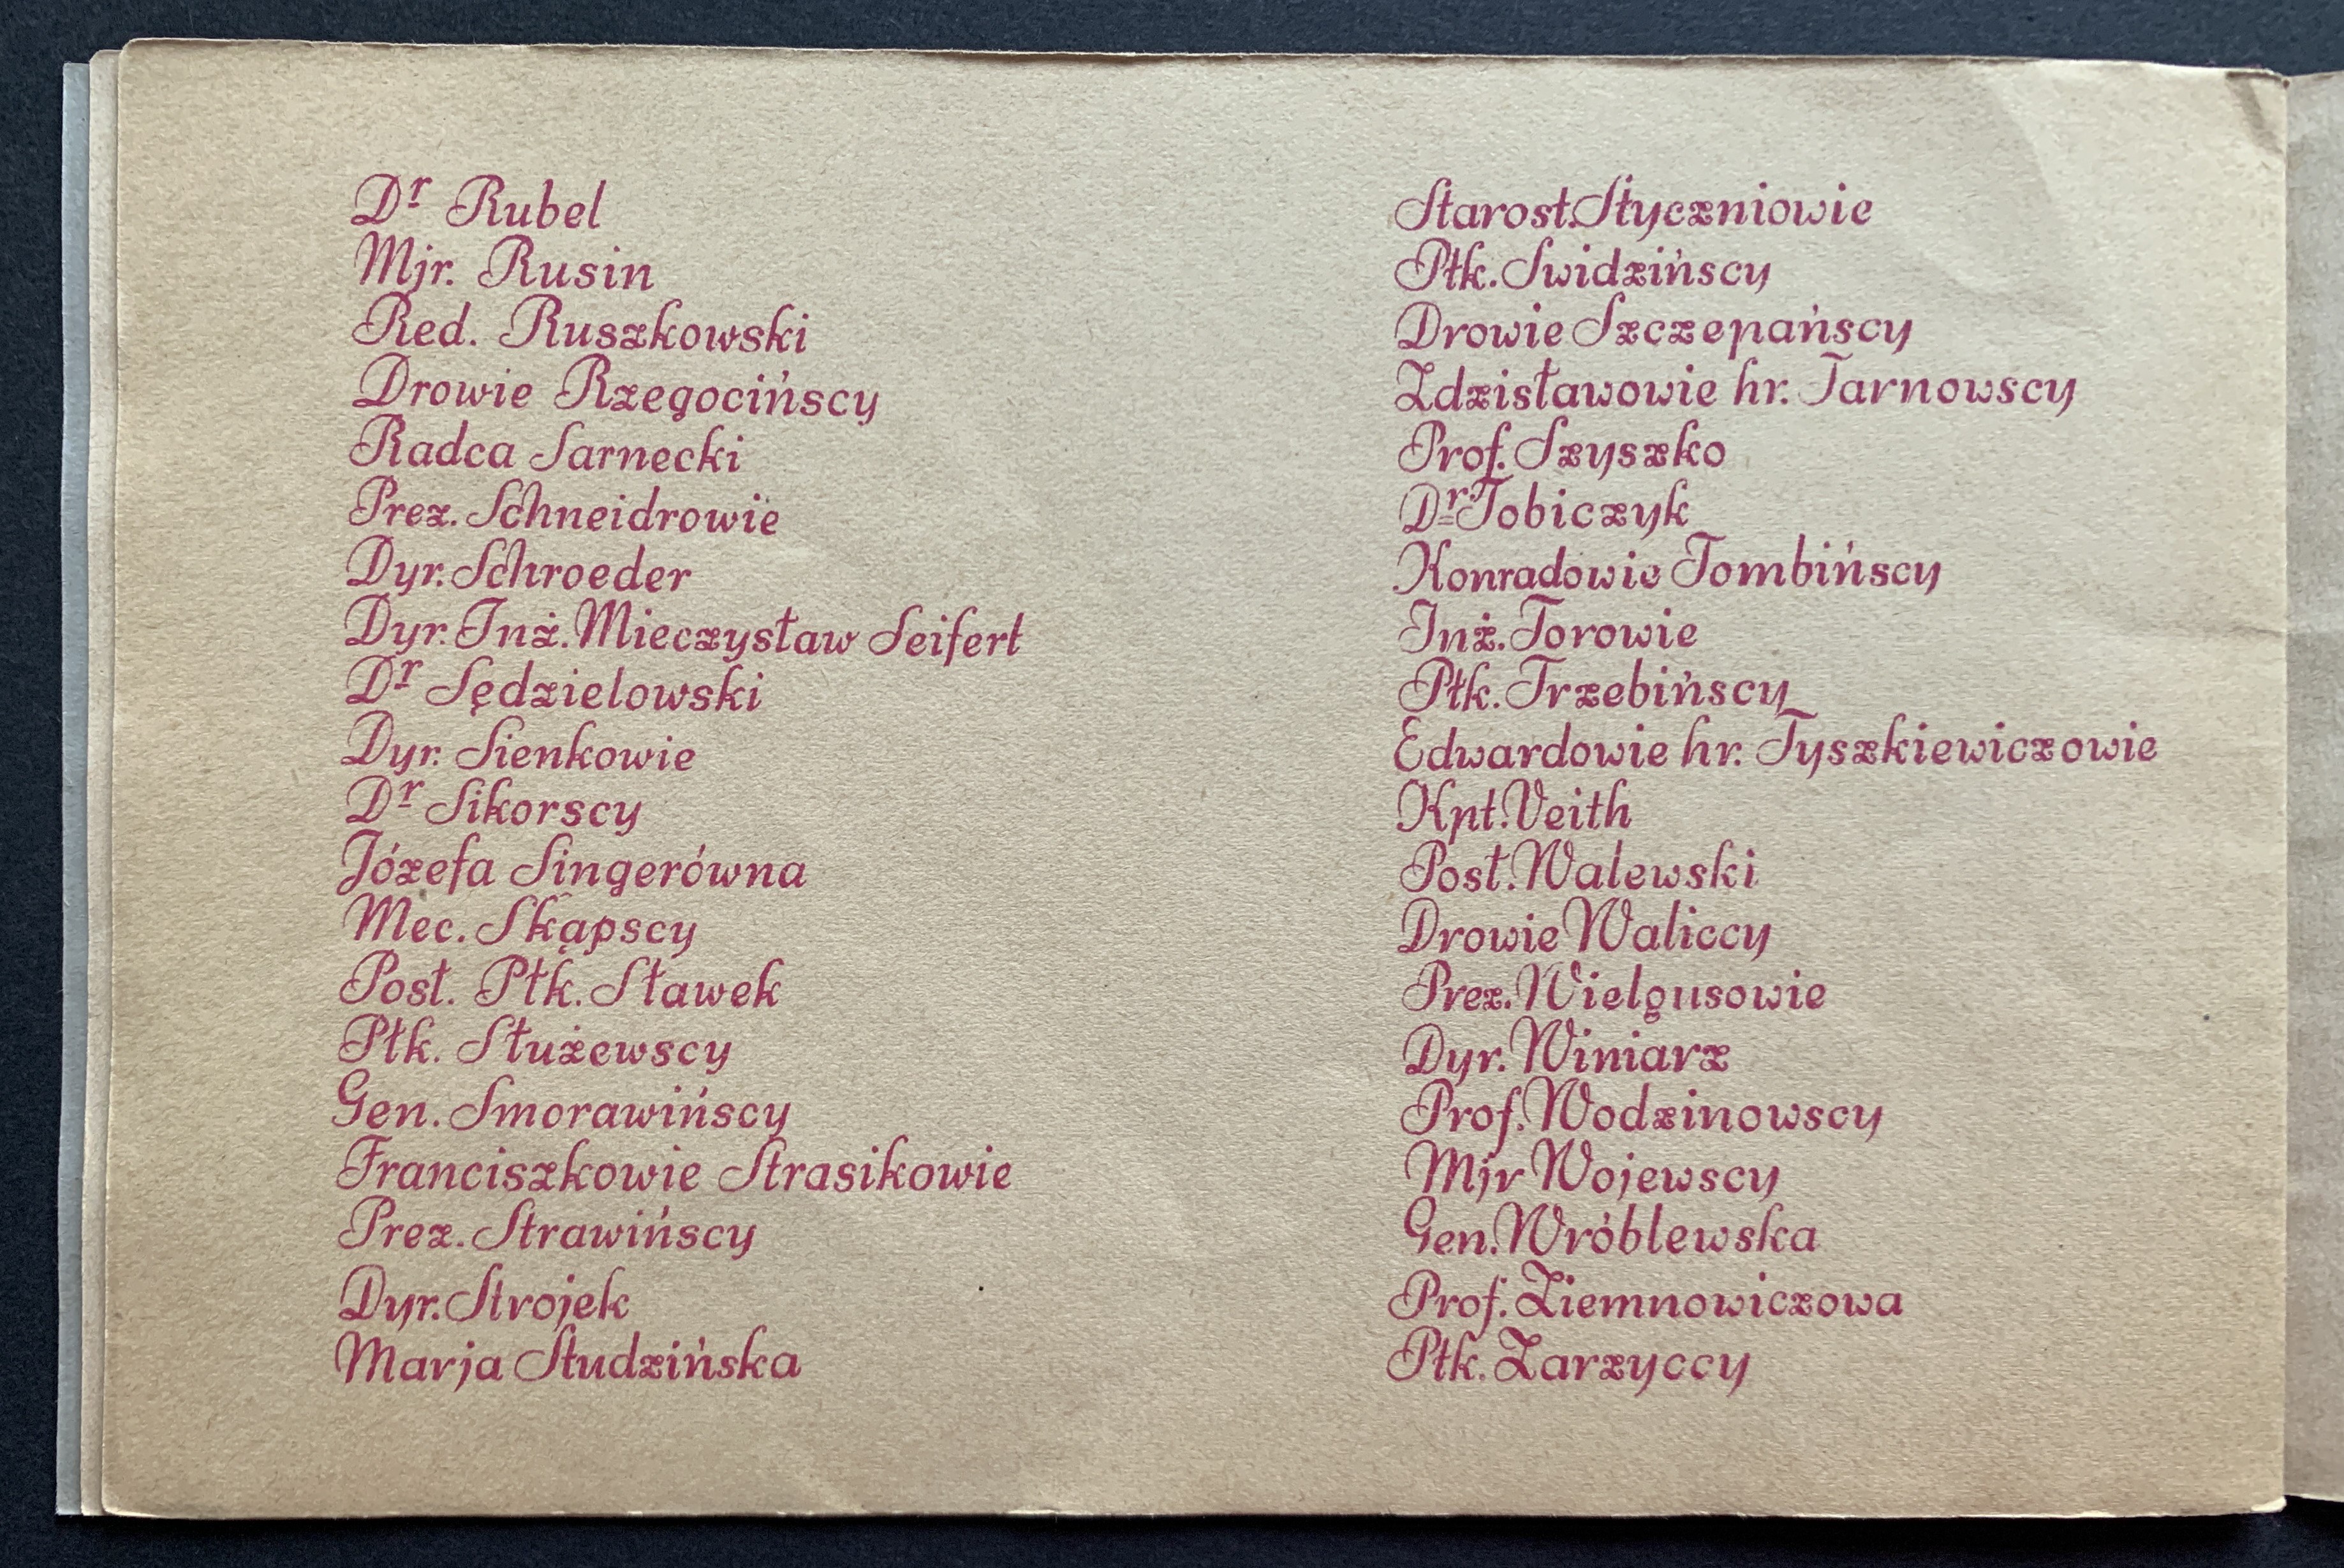 Dr Rubel
Mjr. Rusin
Red. Ruszkowski
Drowie Rzegocińscy
Radca Sarnecki
Prez. Schneidrowie
Dyr. Schroeder
Dyr. Inż. Mieczysław Seifert
Dr Sędzielowski
Dyr. Sienkowie
Dr Sikorscy
Józefa Singerówna
Mec. Skąpscy
Post. Płk. Sławek
Płk. Służewscy
Gen. Smorawińscy
Franciszkowie Strasikowie
Prez. Strawińscy
Dyr. Strojek
Marja Studzińska
Starost. Styczniowie
Płk. Swidzińscy
Drowie Szczepańscy
Zdzisławowie hr. Tarnowscy
Prof. Szyszko
Dr Tobiczyk
Konradowie Tombińscy
Inż. Torowie
Płk. Trzebińscy
Edwardowie hr. Tyszkiewiczowie
Kpt. Veith
Post. Walewski
Drowie Waliccy
Prez. Wielgusowie
Dyr. Winiarz
Prof. Wodzinowscy
Mjr Wojewscy
Gen. Wróblewska
Prof. Ziemnowiczowa
Płk. Zarzyccy